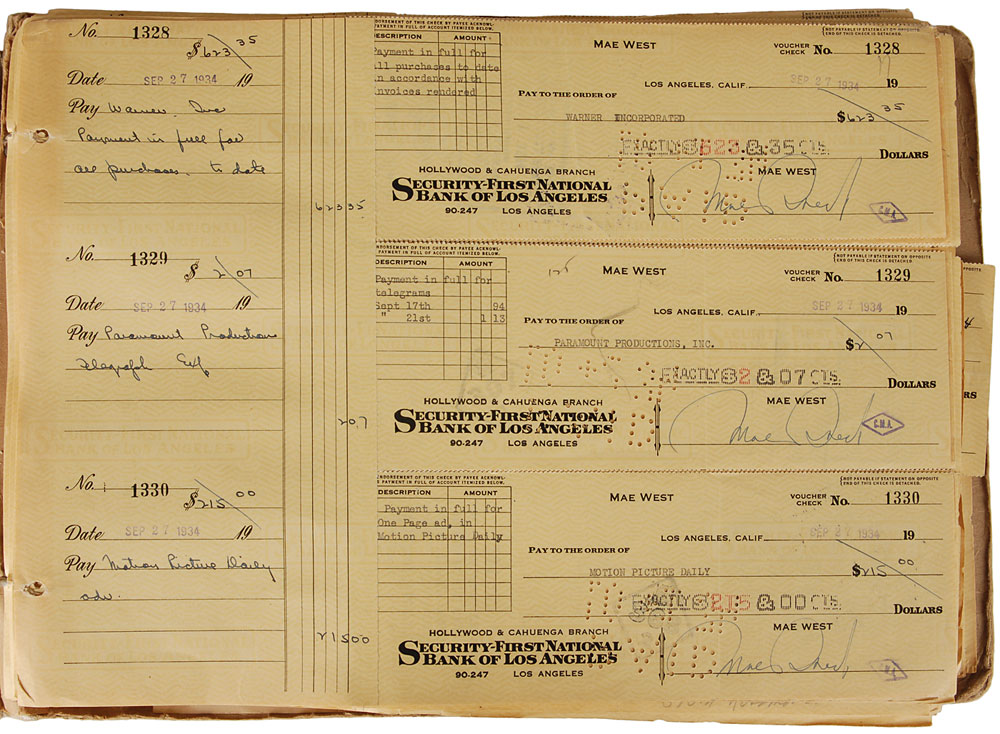 No. 1328
$623 35
Date SEP 27 1934 19
Pay Warner Inc
Payment in full for
all purchases to date
62335
ENDORSEMENT OF THIS CHECK BY PAYEE ACKNOWL-
PAYMENT IN FULL OF ACCOUNT ITEMIZED BELOW.
DESCRIPTION AMOUNT
Payment in full for
all purchases to date
in accordance with
invoices rendered
NOT PAYABLE IF STATEMENT ON OPPOSITE
END OF THIS CHECK IS DETACHED.
MAE WEST
VOUCHER CHECK No. 1328
LOS ANGELES, CALIF. SEP 27 1934 19
PAY TO THE ORDER OF
WARNER INCORPORATED $623 35
EXACTLY $623 & 35 CTS
DOLLARS
HOLLYWOOD & CAHUENGA BRANCH
SECURITY-FIRST NATIONAL
BANK OF LOS ANGELES
90-247 LOS ANGELES
MAE WEST
Mae West
C.M.A.
No. 1329
$2/07
Date SEP 27 1934 19
Pay Paramount Productions
Telegraph Exp
207
ENDORSEMENT OF THIS CHECK BY PAYEE ACKNOWL-
PAYMENT IN FULL OF ACCOUNT ITEMIZED BELOW.
DESCRIPTION AMOUNT
Payment in full for
telegrams
Sept 17th 94
" 21st 1 13
NOT PAYABLE IF STATEMENT ON OPPOSITE
END OF THIS CHECK IS DETACHED.
MAE WEST
VOUCHER CHECK No. 1329
LOS ANGELES, CALIF. SEP 27 1934 19
PAY TO THE ORDER OF
PARAMOUNT PRODUCTIONS, INC. $2 07
EXACTLY $2 & 07 CTS
DOLLARS
HOLLYWOOD & CAHUENGA BRANCH
SECURITY-FIRST NATIONAL
BANK OF LOS ANGELES
90-247 LOS ANGELES
MAE WEST
Mae West
C.M.A.
No. 1330
$215 00
Date SEP 27 1934 19
Pay Motion Picture Daily
adv.
21500
ENDORSEMENT OF THIS CHECK BY PAYEE ACKNOWL-
PAYMENT IN FULL OF ACCOUNT ITEMIZED BELOW.
DESCRIPTION AMOUNT
Payment in full for
One Page ad, in
Motion Picture Daily
NOT PAYABLE IF STATEMENT ON OPPOSITE
END OF THIS CHECK IS DETACHED.
MAE WEST
VOUCHER CHECK No. 1330
LOS ANGELES, CALIF. SEP 27 1934 19
PAY TO THE ORDER OF
MOTION PICTURE DAILY $215 00
EXACTLY $215 & 00 CTS
DOLLARS
HOLLYWOOD & CAHUENGA BRANCH
SECURITY-FIRST NATIONAL
BANK OF LOS ANGELES
90-247 LOS ANGELES
MAE WEST
Mae West